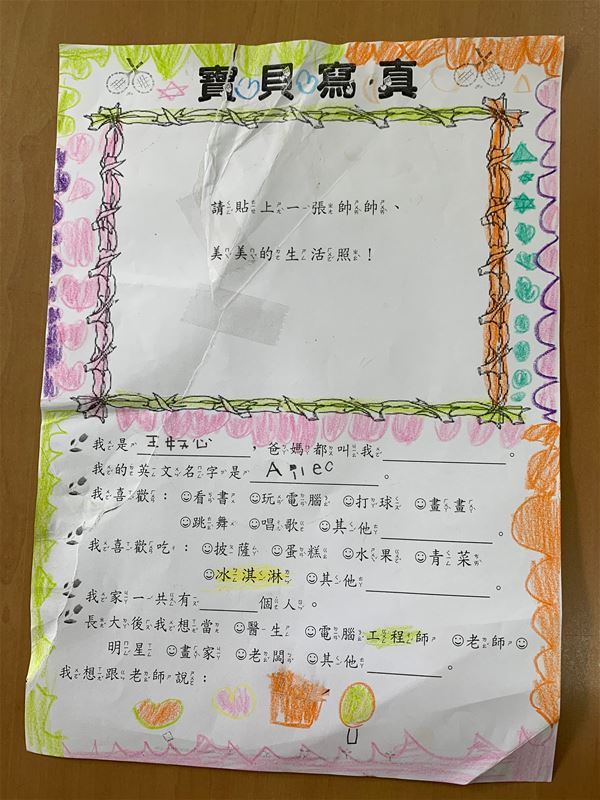 寶貝寫真
請貼上一張帥帥、
美美的生活照！
我是 王 心 ，爸媽都叫我 。
我的英文名字是 Apiec 。
我喜歡：☺看書 ☺玩電腦 ☺打球 ☺畫畫
☺跳舞 ☺唱歌 ☺其他
我喜歡吃：☺披薩 ☺蛋糕 ☺水果 ☺青菜
☺冰淇淋 ☺其他 。
我家一共有 個人。
長大後我想當 ☺醫生 ☺電腦工程師 ☺老師 ☺
明星 ☺畫家 ☺老闆 ☺其他 。
我想跟老師說：